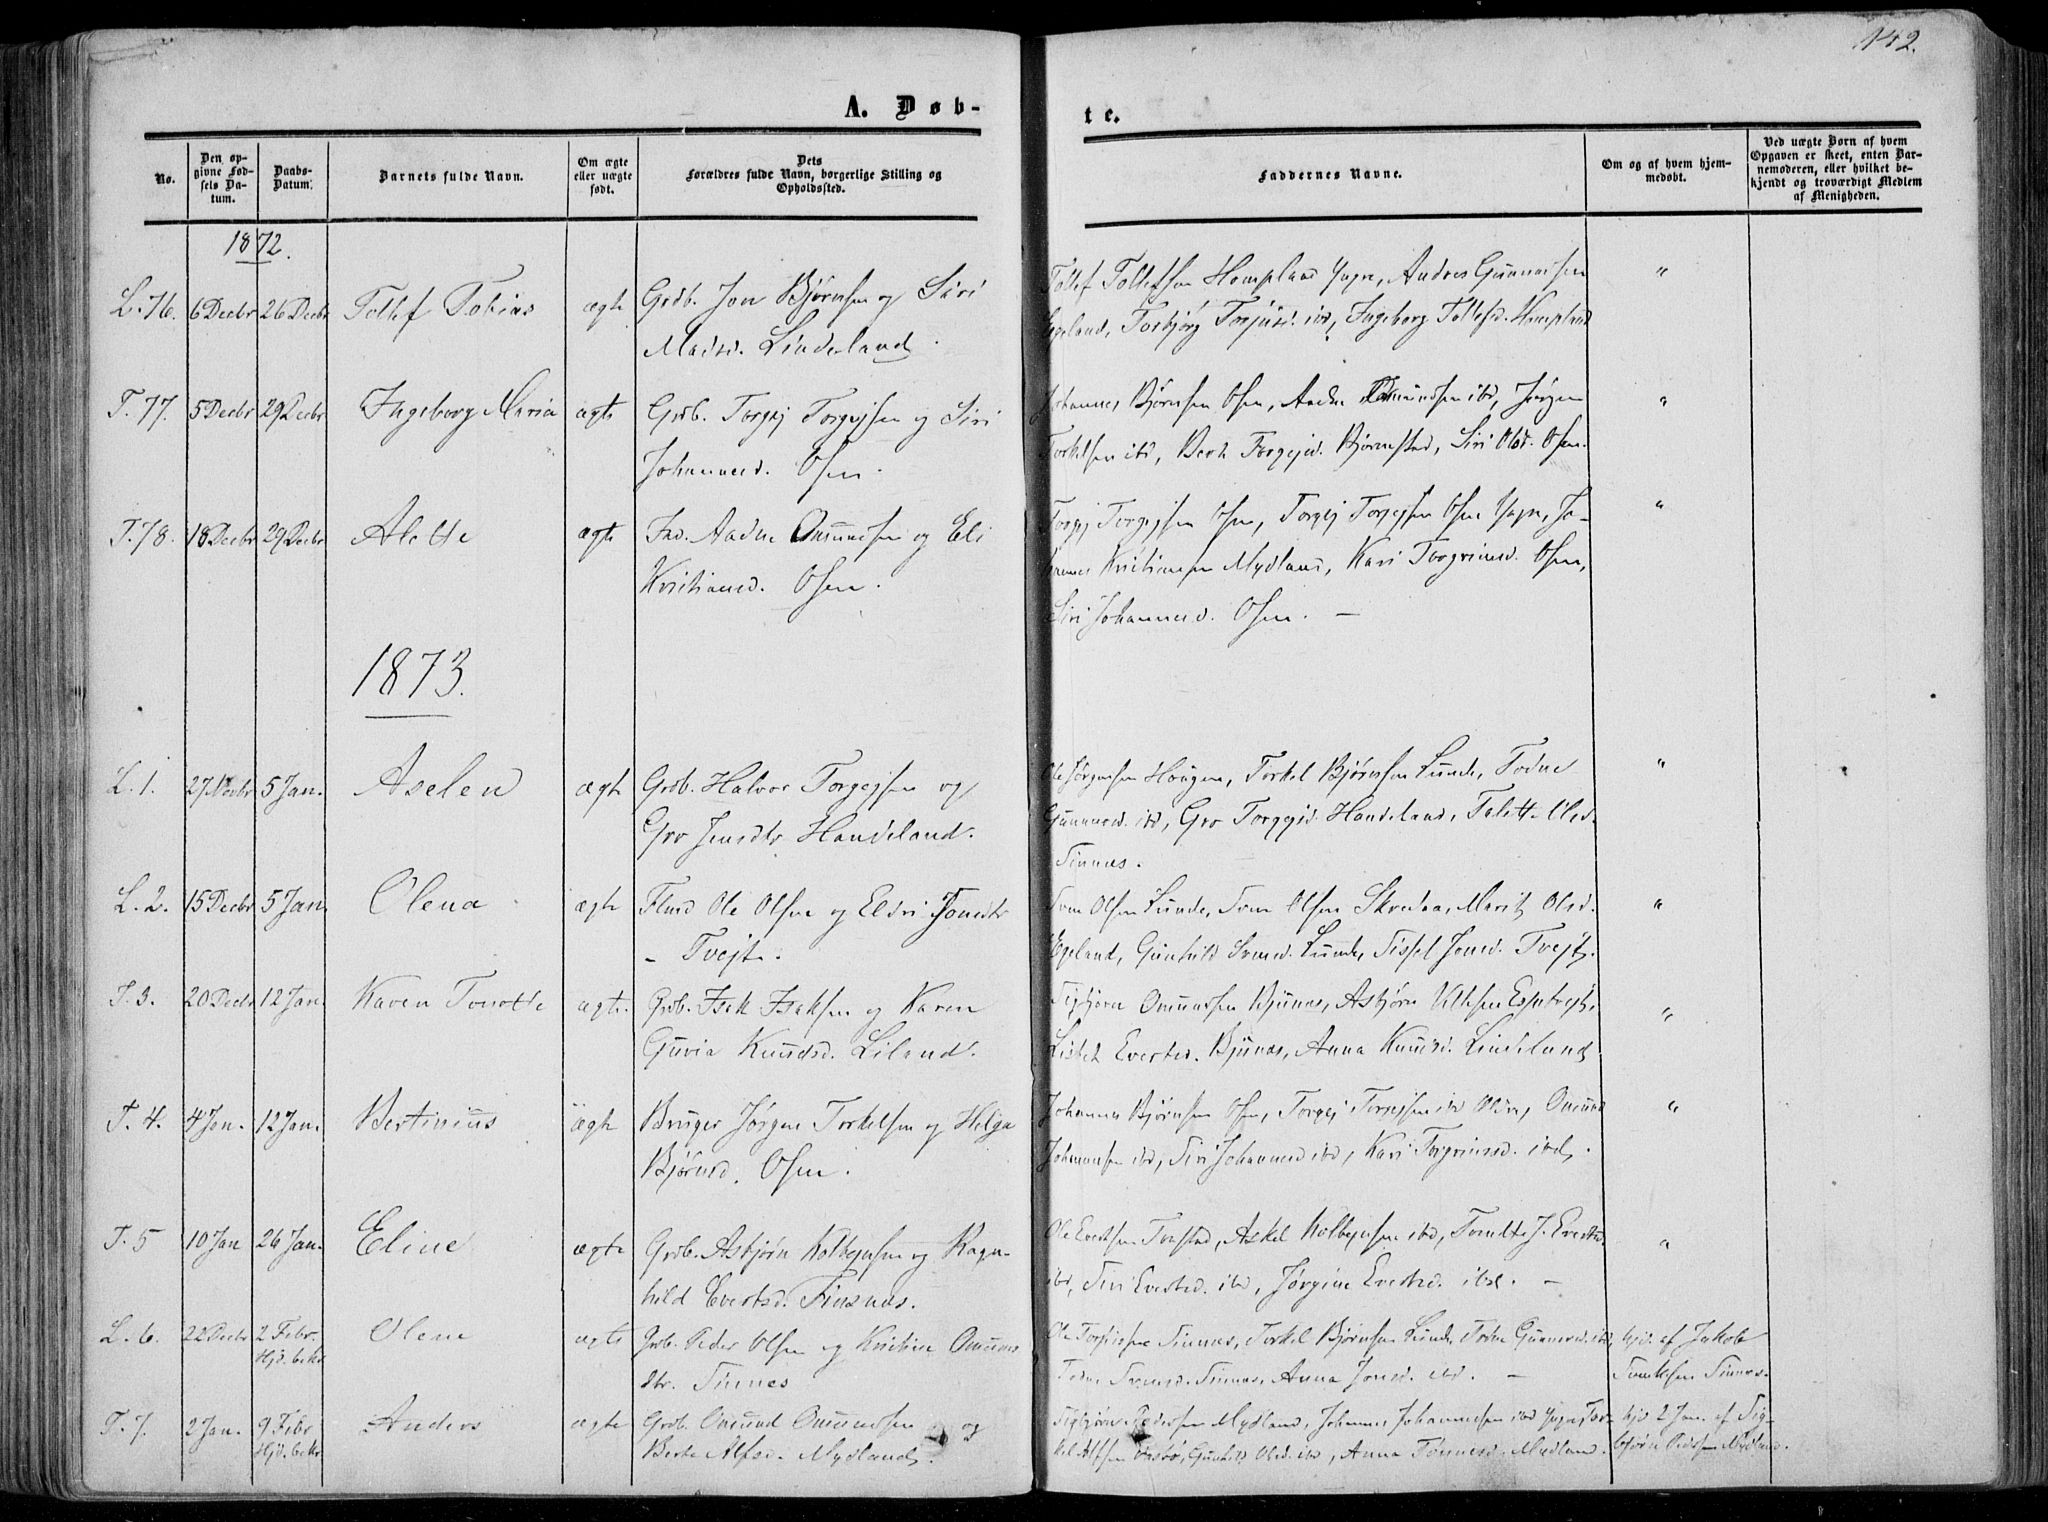 142.
A. Døb-
te.
No.
Den op-
givne Fød-
sels Da-
tum.
Daabs-
Datum.
Barnets fulde Navn.
Om ægte
eller uægte
født.
Dets
Forældres fulde Navn, borgerlige Stilling og
Opholdssted.
Faddernes Navne.
Om og af hvem hjem-
medøbt.
Ved uægte Børn af hvem
Opgaven er skeet, enten Bar-
nemoderen, eller hvilket be-
kjendt og troværdigt Medlem
af Menigheden.
1872.
L. 76. 6 Decbr 26 Decbr Tollef Tobias ægte Grdb. Jon Bjørnsen og Siri
Madsd. Lindeland.
Tollef Tollefsen Hompland Yngre, Andres Gunnarsen
Egeland, Torbjörg Torjusd. ibd, Ingeborg Tollefsd. Hompland
"
T. 77. 5 Decbr 29 Decbr Ingeborg Maria ægte Grdb. Torgej Torgejsen og Siri
Johannesd. Osen.
Johannes Bjørnsen Osen, Aadne Omundsen ibd, Jørgen
Torkelsen ibd, Berte Torgejsd. Bjørnestad, Siri Olsd. Osen.
"
T. 78. 18 Decbr 29 Decbr Alette ægte Ind. Aadne Omundsen og Eli
Kristiansd. Osen.
Torgej Torgejsen Osen, Torgej Torgejsen Osen Yngre, Jo-
hannes Kristiansen Mydland, Kari Torgrimsd. Osen,
Siri Johannesd. Osen. —
"
1873.
L. 1. 27 Novbr 5 Jan. Aselen ægte Grdb. Halvor Torgejsen og
Gro Jensdtr Handeland.
Ole Jørgensen Hougen, Torkel Bjørnsen Lunde, Todne
Gunnarsd. ibd, Gro Torgejsd. Handeland, Talette Olsd.
Sinnes.
"
L. 2. 15 Decbr 5 Jan. Olena ægte Ole Olsen og Eldri Jonsdtr
- Tvejt.
Sven Olsen Lunde, Sven Olsen Skredaa, Marit Olsd.
Egeland, Gunhild Svensd. Lunde, Sissel Jonsd. Tvejt.
"
T. 3. 20 Decbr 12 Jan. Karen Tonette ægte. Grdb. Isak Isaksen og Karen
Guria Knudsd. Liland.
Sigbjørn Omundsen Bjunes, Asbjørn Espetvejt,
Lisbet Evertsd. Bjunes, Anna Knudsd. Lindeland
"
T. 4. 4 Jan. 12 Jan. Bertinius ægte Bruger Jørgen Torkelsen og Helga
Bjørnsd. Osen.
Johannes Bjørnsen Osen, Torgej Torgejsen ibd Ældre, Omund
Johannsen ibd, Siri Johannesd ibd, Kari Torgrimsd. ibd.
"
T. 5 10 Jan 26 Jan. Eline ægte Grdb. Asbjørn Kolbejnsen og Ragn-
hild Evertsd. Finsnes.
Ole Evertsen Tonstad, Askel Kolbejnsen ibd, J. Evertsd.
ibd, Siri Evertsd. ibd, Jørgine Evertsd. ibd. —
"
L. 6. 22 Decbr 2 Febr. Olene ægte Grdb. Peder Olsen og Kristine Omunds
dtr. Sinnes
Hjd. bekr
Ole Sinnes, Torkel Bjørnsen Lunde, Todne Gunnarsd. ibd,
Todne Svensd. Sinnes, Anna Jonsd. ibd. —
hjd. af Jakob
Sinnes.
T. 7. 2 Jan. 9 Febr Anders ægte Grdb. Omund Omundsen og
Hjd. bekr
Berte Alfsd. Mydland.
Sigbjørn Pedersen Mydland, Johannes Johannesen ibd Yngre, Tor-
kel Alfsen, Gunhild Olsd. ibd, Anna Tønnesd. Mydland.
hjd 2 Jan. af Sig-
bjørn Pedersen Mydland.